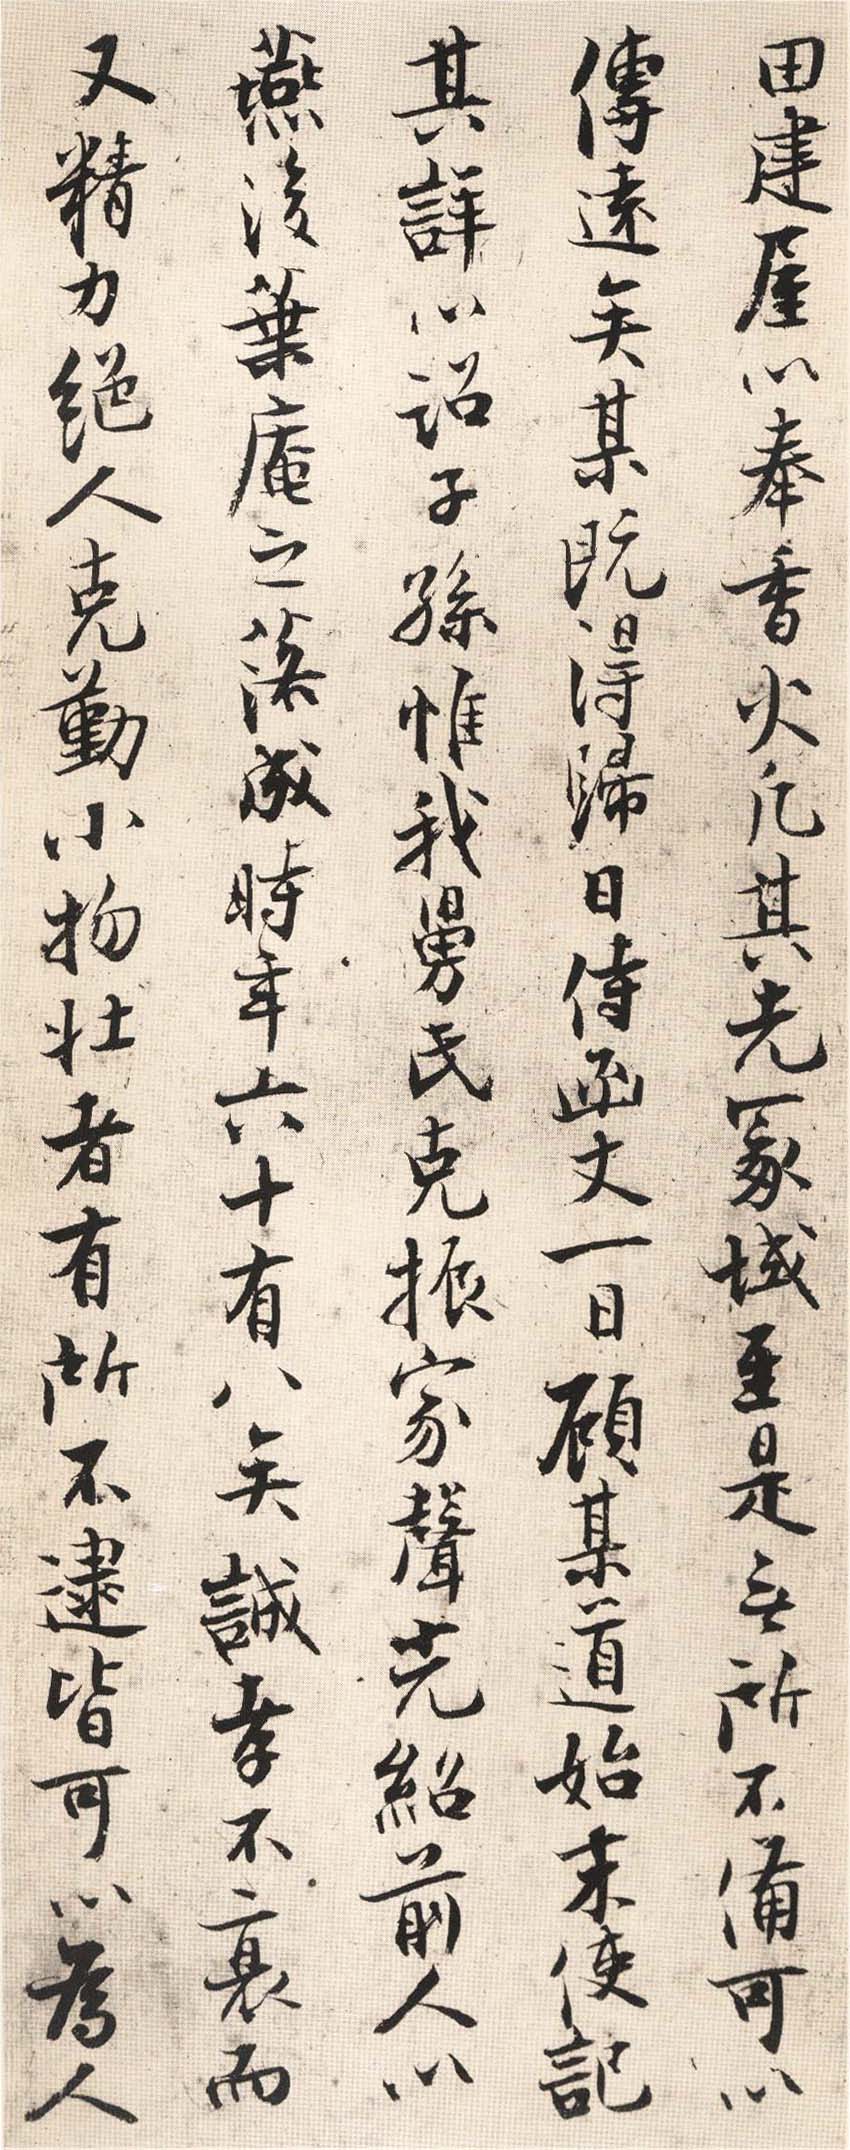 田建屋以奉香火凡其先冢域至是无所不備可以
傳遠矣某既得歸日侍函丈一日顧某道始末使記
其詳以詔子孫惟我舅氏克振家聲光紹前人以
燕後葉庵之落成時年六十有八矣誠孝不衰而
又精力絕人克勤小物壯者有所不逮皆可以為人